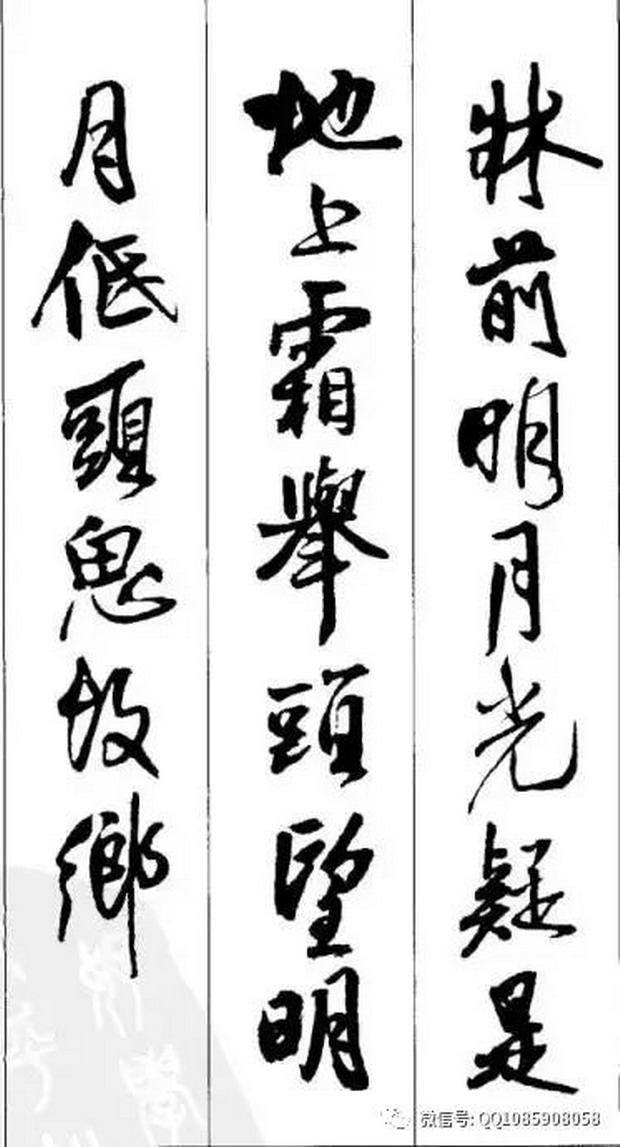 牀前明月光疑是
地上霜舉頭望明
月低頭思故鄉
微信号: QQ1085908058